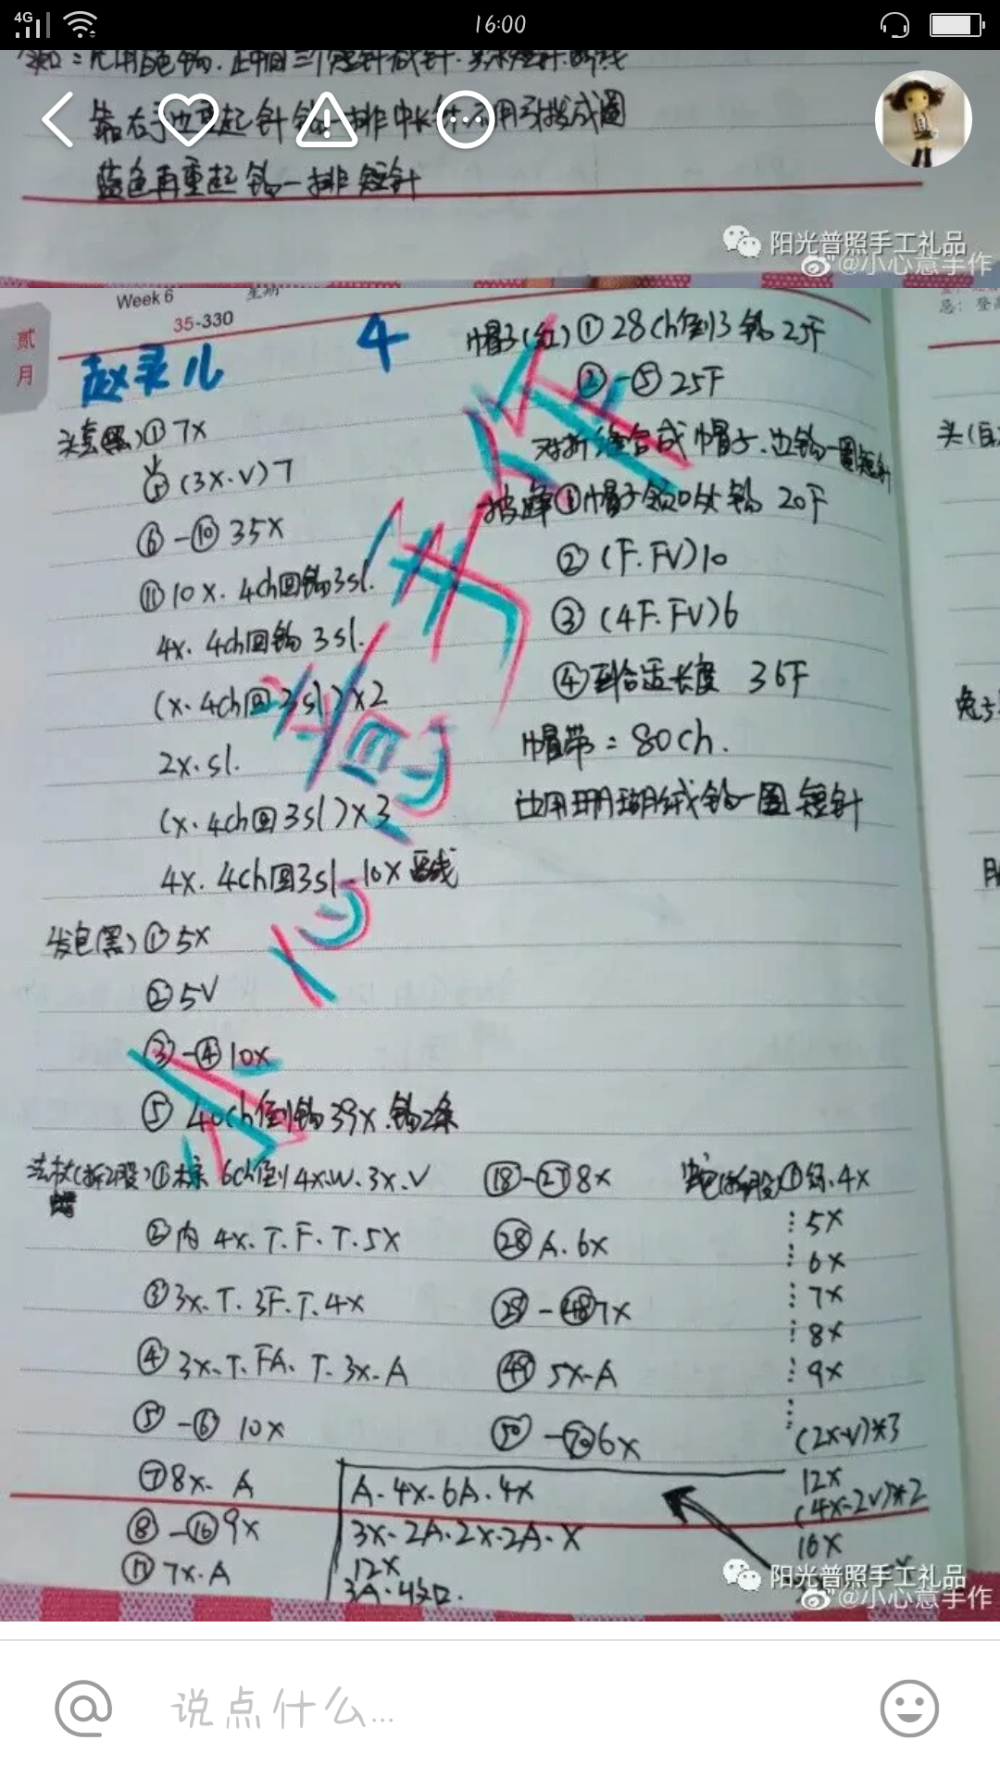 4G
16:00
蓝色再重起钩一排短针
阳光普照手工礼品
@小心意手作
Week 6
35-330
贰月
赵灵儿
4
头套(黑)①7X
(3X.V)7
⑥-⑩ 35X
⑪10X.4ch回钩3sl.
4X.4ch回钩3sl.
(X.4ch回3sl)×2
2X.sl.
(X.4ch回3sl)×3
4X.4ch回3sl.10X
发包(黑)①5X
②5V
③-④10X
⑤40ch倒钩39X.钩2条
帽子(红)①28ch倒3钩25F
②-⑤25F
对折缝合成帽子.边钩一圈短针
披肩①帽子领口处钩20F
②(F.FV)10
③(4F.FV)6
④到合适长度 36F
帽带=80ch.
边用珊瑚绒钩一圈短针
法杖(拆2股)①棕 6ch倒4X.W.3X.V
②内 4X.T.F.T.5X
③3X.T.3F.T.4X
④3X.T.FA.T.3X.A
⑤-⑥ 10X
⑦8X.A
⑧-⑯9X
⑰7X.A
⑱-㉗8X
㉘A.6X
㉙-㊽7X
㊾5X.A
㊿-70 6X
①绿.4X
5X
6X
7X
8X
9X
(2X.V)*3
12X
(4X.2V)*2
16X
A.4X.6A.4X
3X.2A.2X.2A.X
12X
3A.收口.
阳光普照手工礼品
@小心意手作
说点什么...